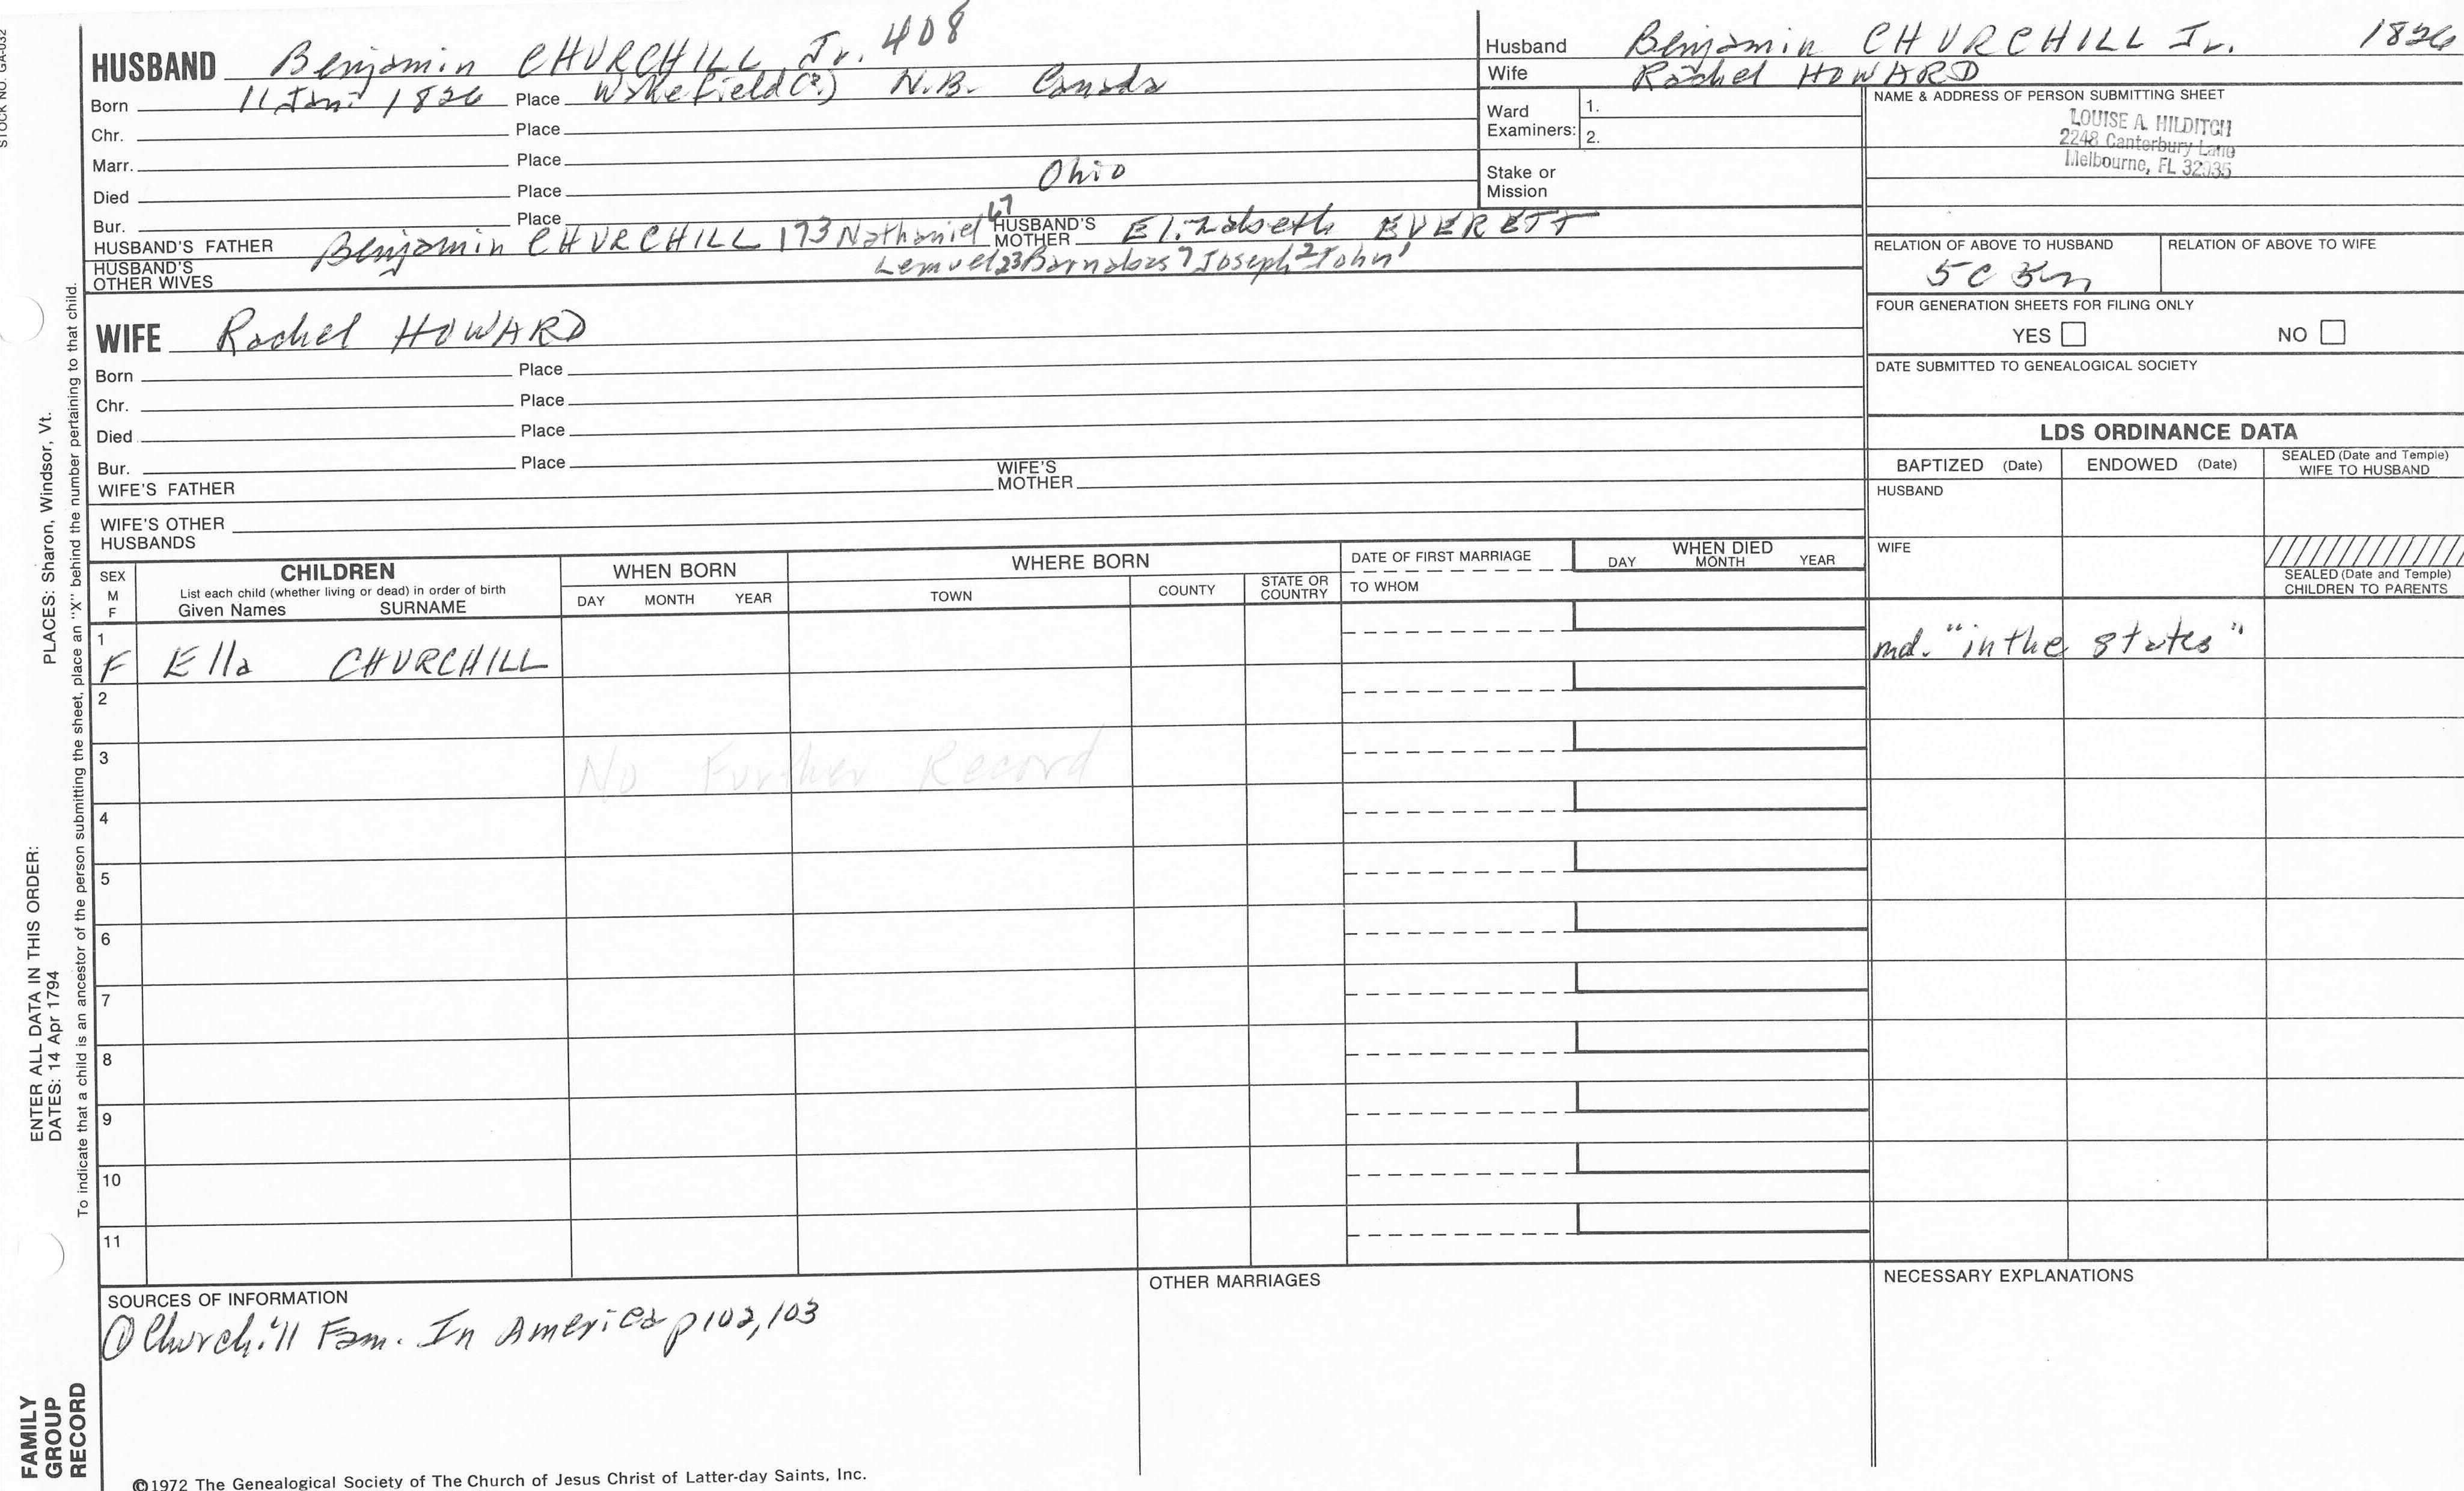 STOCK NO. GA-032
HUSBAND Benjamin CHURCHILL, Jr. 408
Born 11 Jan 1826 Place Wakefield(?) N.B. Canada
Chr. Place
Marr. Place
Died Place Ohio
Bur. Place
HUSBAND'S FATHER Benjamin CHURCHILL 173 Nathaniel 67 HUSBAND'S MOTHER Elizabeth EVERETT
HUSBAND'S OTHER WIVES Lemuel 23 Barnabas 7 Joseph 2 John 1
WIFE Rachel HOWARD
Born Place
Chr. Place
Died Place
Bur. Place
WIFE'S FATHER WIFE'S MOTHER
WIFE'S OTHER HUSBANDS
Husband Benjamin CHURCHILL Jr. 1826
Wife Rachel HOWARD
Ward Examiners: 1.
2.
Stake or Mission
NAME & ADDRESS OF PERSON SUBMITTING SHEET
LOUISE A. HILDITCH
2248 Canterbury Lane
Melbourne, FL 32935
RELATION OF ABOVE TO HUSBAND RELATION OF ABOVE TO WIFE
5C
FOUR GENERATION SHEETS FOR FILING ONLY
YES NO
DATE SUBMITTED TO GENEALOGICAL SOCIETY
LDS ORDINANCE DATA
BAPTIZED (Date) ENDOWED (Date) SEALED (Date and Temple) WIFE TO HUSBAND
HUSBAND
WIFE
SEALED (Date and Temple) CHILDREN TO PARENTS
SEX M F CHILDREN WHEN BORN WHERE BORN DATE OF FIRST MARRIAGE WHEN DIED
List each child (whether living or dead) in order of birth
Given Names SURNAME DAY MONTH YEAR TOWN COUNTY STATE OR COUNTRY TO WHOM DAY MONTH YEAR
1
F Ella CHURCHILL md. "in the states"
2
3 No Further Record
4
5
6
7
8
9
10
11
SOURCES OF INFORMATION
① Churchill Fam. In America p102,103
OTHER MARRIAGES
NECESSARY EXPLANATIONS
©1972 The Genealogical Society of The Church of Jesus Christ of Latter-day Saints, Inc.
FAMILY GROUP RECORD
ENTER ALL DATA IN THIS ORDER:
DATES: 14 Apr 1794 PLACES: Sharon, Windsor, Vt.
To indicate that a child is an ancestor of the person submitting the sheet, place an "X" behind the number pertaining to that child.